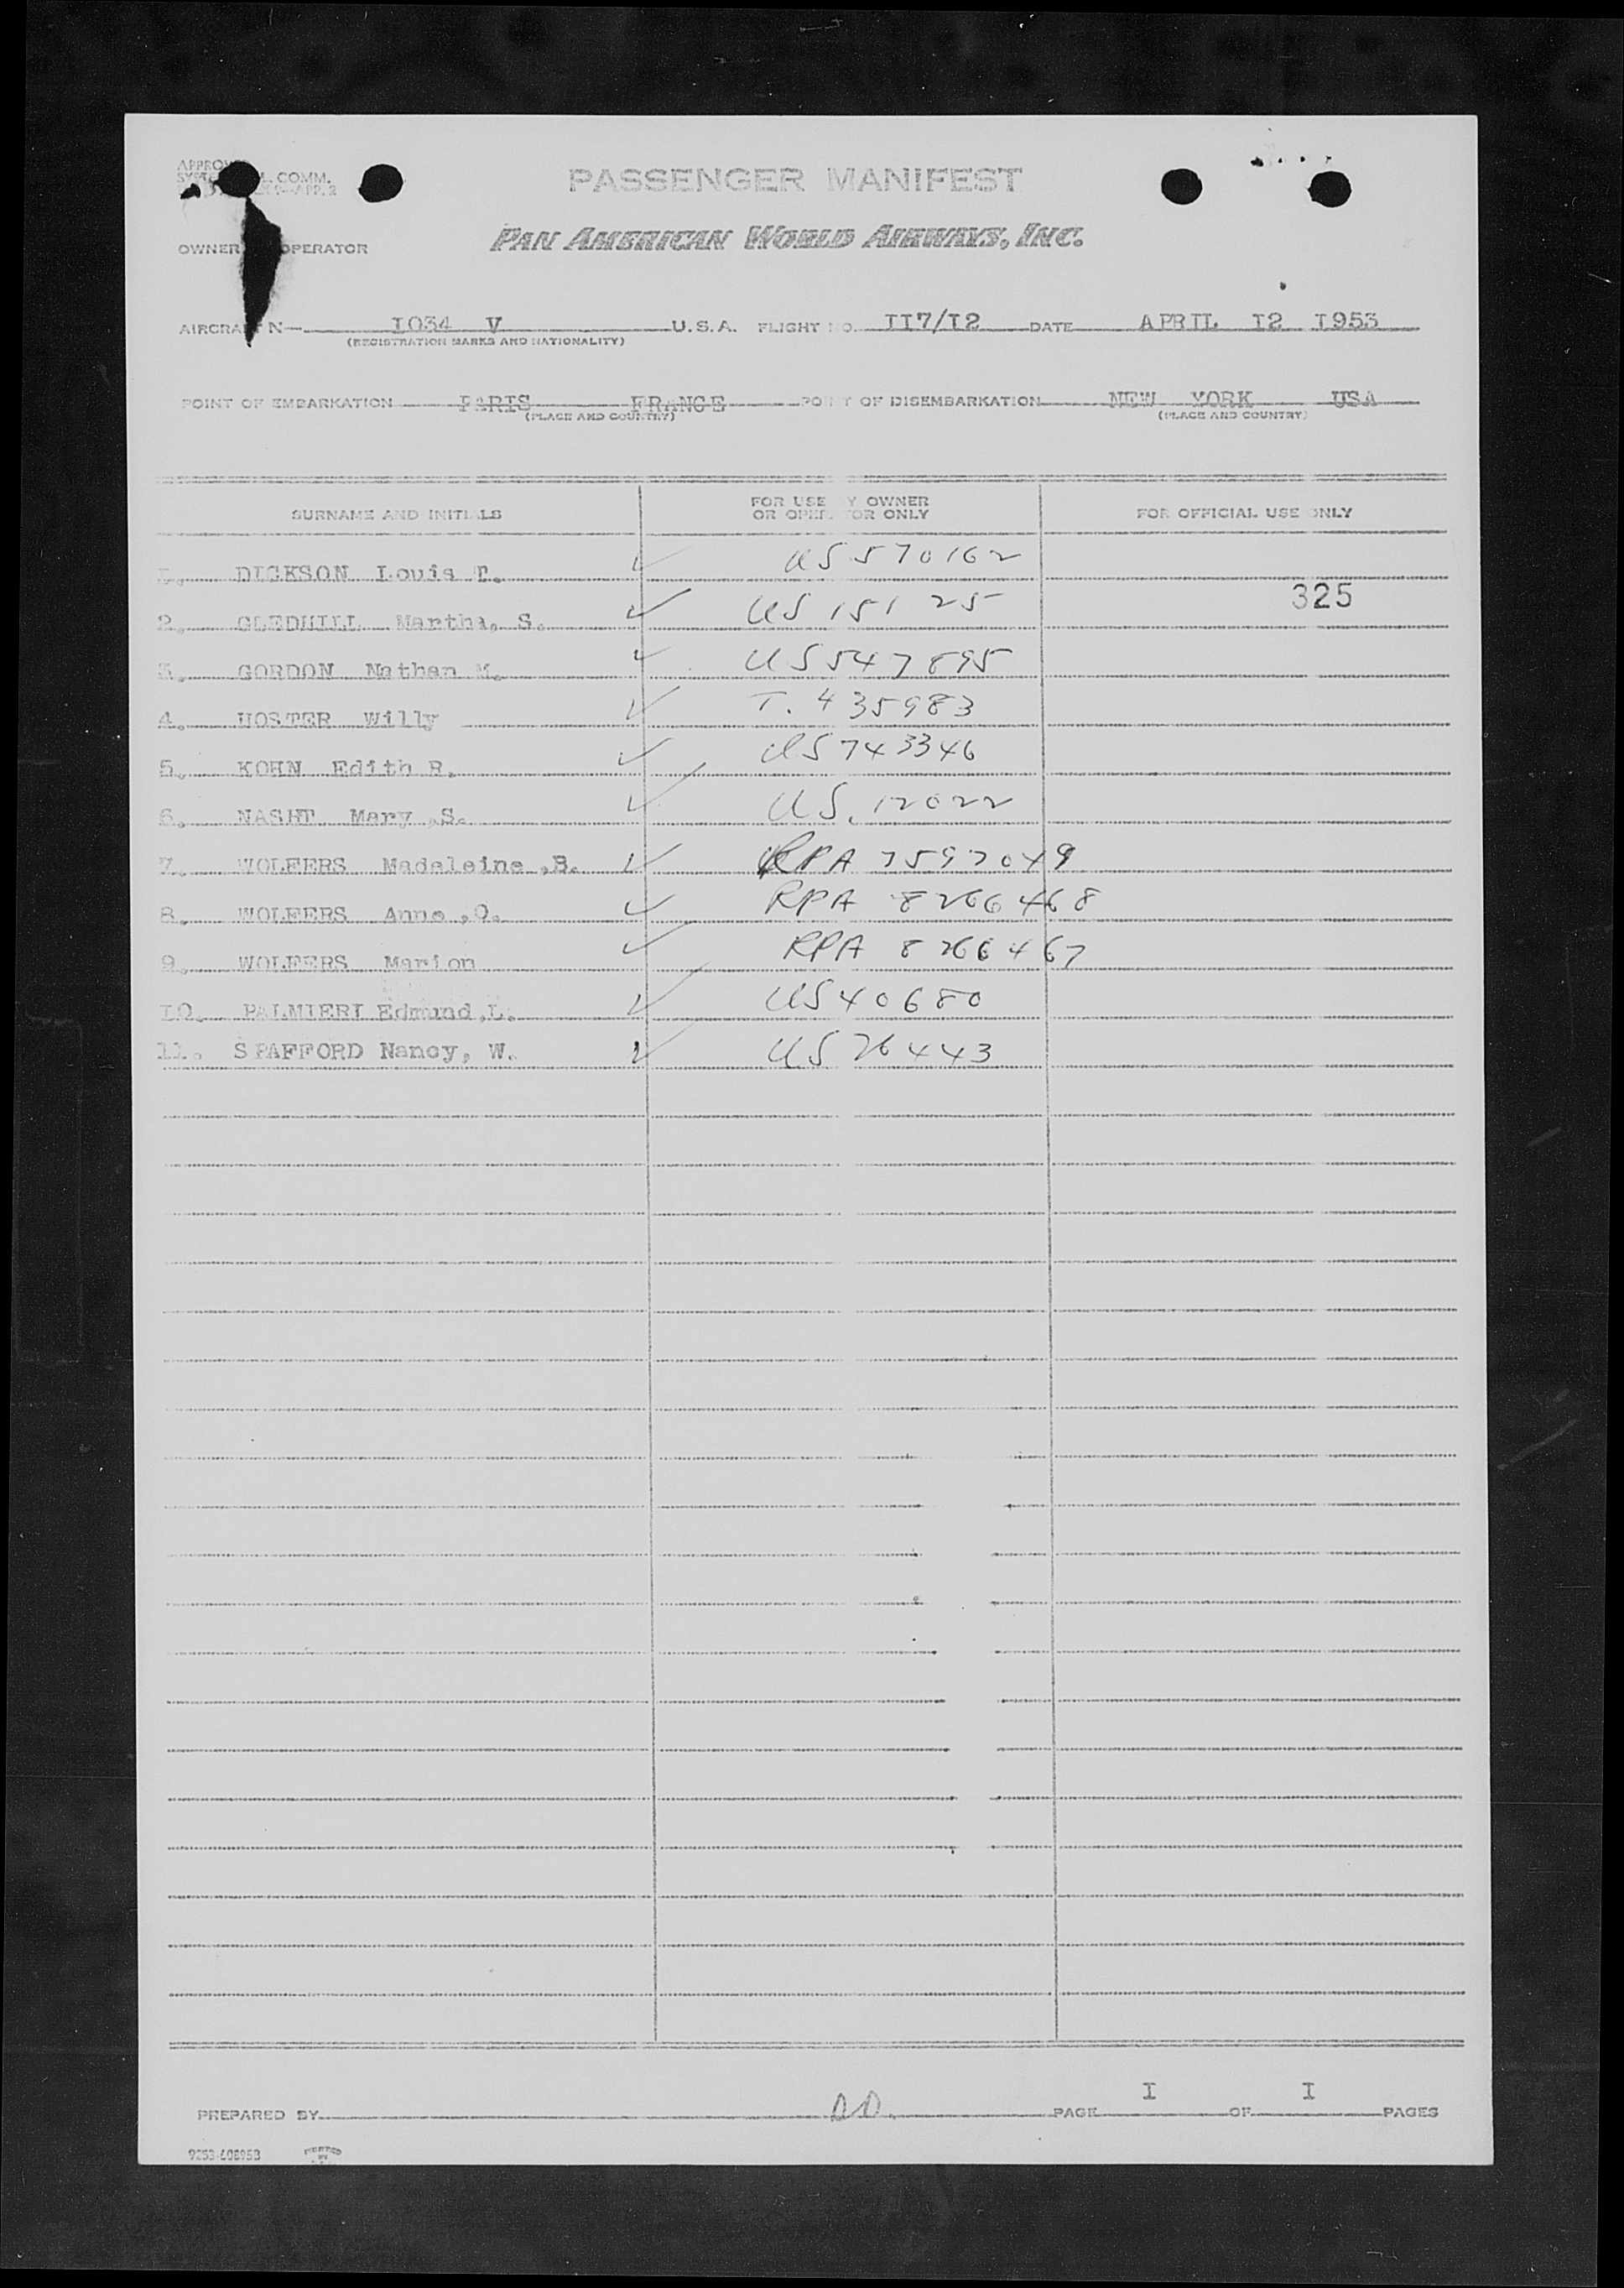 PASSENGER MANIFEST
PAN AMERICAN WORLD AIRWAYS, INC.
OWNER OPERATOR
AIRCRAFT N— I034 V U.S.A. FLIGHT NO. II7/I2 DATE APRIL I2 I953
(REGISTRATION MARKS AND NATIONALITY)
POINT OF EMBARKATION PARIS FRANCE POINT OF DISEMBARKATION NEW YORK USA
(PLACE AND COUNTRY) (PLACE AND COUNTRY)
SURNAME AND INITIALS FOR USE BY OWNER OR OPERATOR ONLY FOR OFFICIAL USE ONLY
I. DICKSON Louis T. US 570162
325
2. GLEDHILL Martha, S. US 151 25
3. GORDON Nathan M. US 547895
4. HOSTER Willy T. 435983
5. KOHN Edith R. US 743346
6. NASHT Mary ,S. US. 12022
7. WOLFERS Madeleine ,B. RPA 7597049
8. WOLFERS Anne ,O. RPA 8266468
9. WOLFERS Marion RPA 8266467
IO. PALMIERI Edmund ,L. US 40680
11. SPAFFORD Nancy, W. US 26443
PREPARED BY DD. PAGE I OF I PAGES